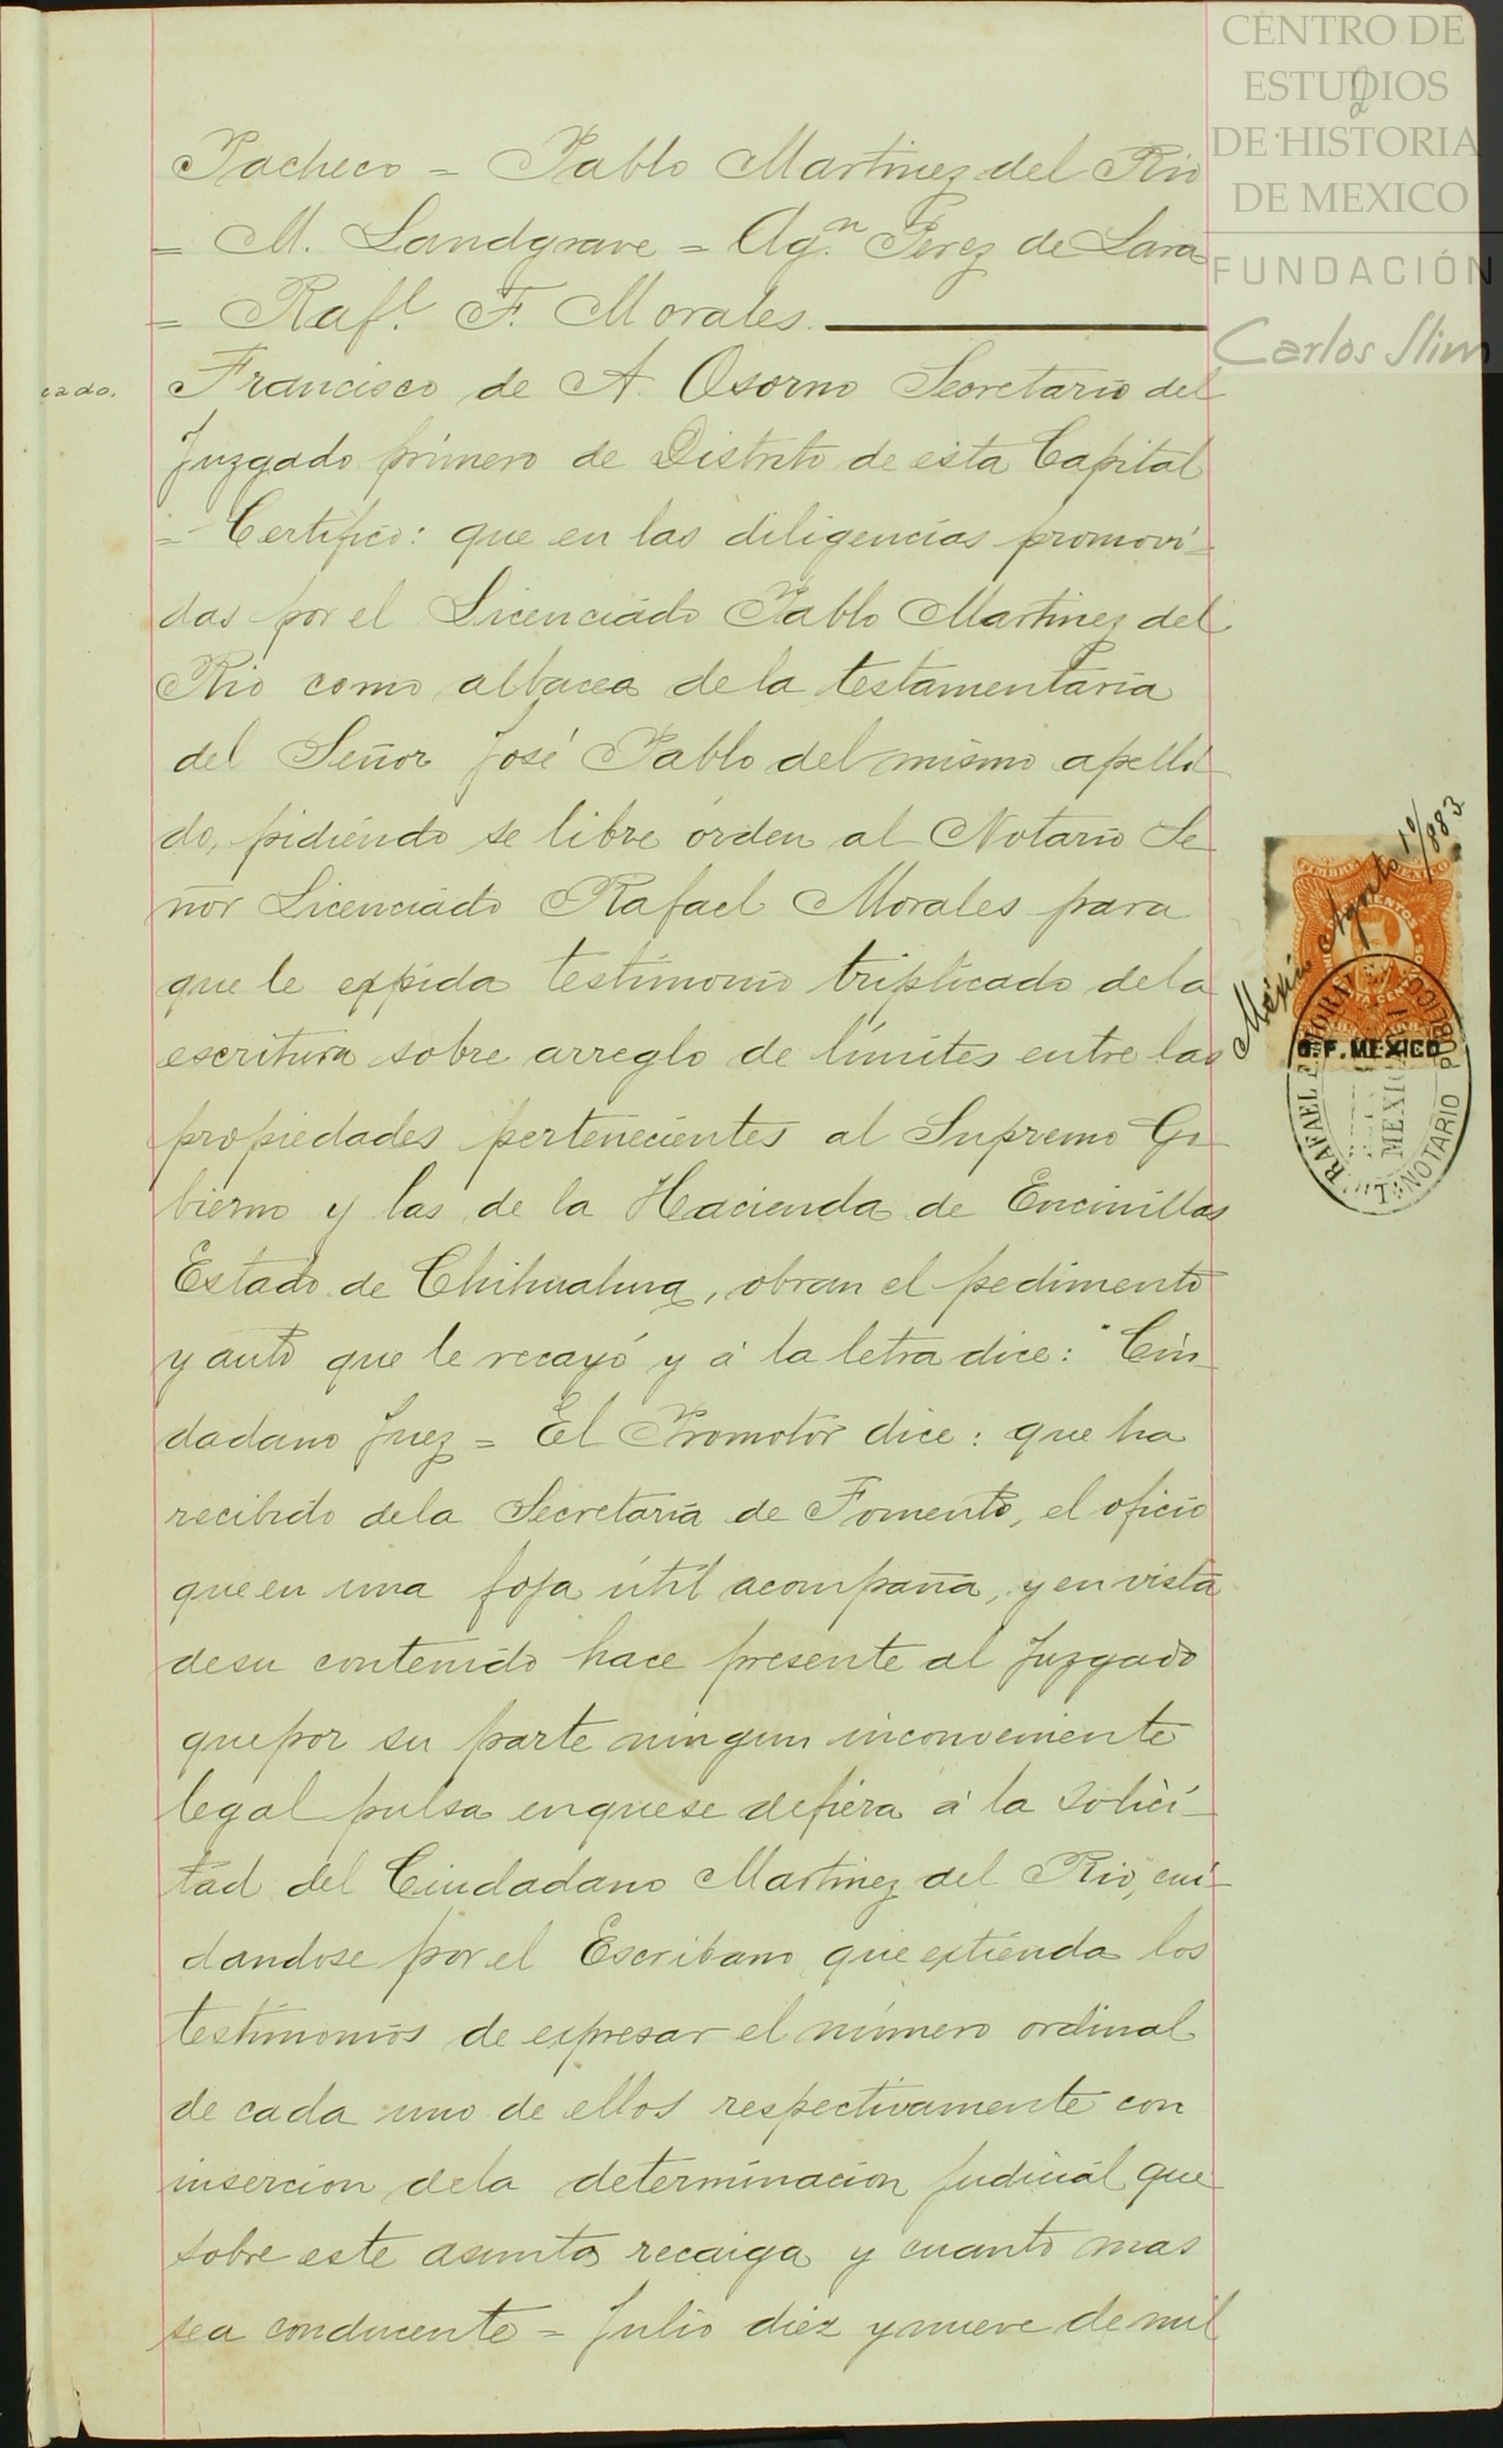 CENTRO DE
ESTUDIOS
DE HISTORIA
DE MEXICO
FUNDACIÓN
Carlos Slim
Pacheco = Pablo Martinez del Rio
= M. Landgrave = Agn. Perez de Lara
= Rafl. F. Morales.
cado.
Francisco de A. Osorno Secretario del
Juzgado primero de Distrito de esta Capital
= Certifico: que en las diligencias promovi-
das por el Licenciado Pablo Martinez del
Rio como albacea de la testamentaria
del Señor José Pablo del mismo apelli-
do, pidiendo se libre orden al Notario Se-
ñor Licenciado Rafael Morales para
que le expida testimonio triplicado de la
escritura sobre arreglo de limites entre las
propiedades pertenecientes al Supremo Go-
bierno y las de la Hacienda de Encinillas
Estado de Chihuahua, obran el pedimento
y auto que le recayó y á la letra dice: "Ciu-
dadano Juez = El Promotor dice: que ha
recibido de la Secretaría de Fomento, el oficio
que en una foja útil acompaña, y en vista
de su contenido hace presente al Juzgado
que por su parte ningun inconveniente
legal pulsa en que se defiera á la solici-
tad del Ciudadano Martinez del Rio, cui-
dandose por el Escribano que extienda los
testimonios de expresar el número ordinal
de cada uno de ellos respectivamente con
insercion de la determinacion judicial que
sobre este asunto recaiga y cuanto mas
sea conducente = Julio diez y nueve de mil
México Agosto 1º/883
DOCUMENTOS
D. F. MEXICO
RAFAEL F. MORALES
MEXICO
NOTARIO PUBLICO